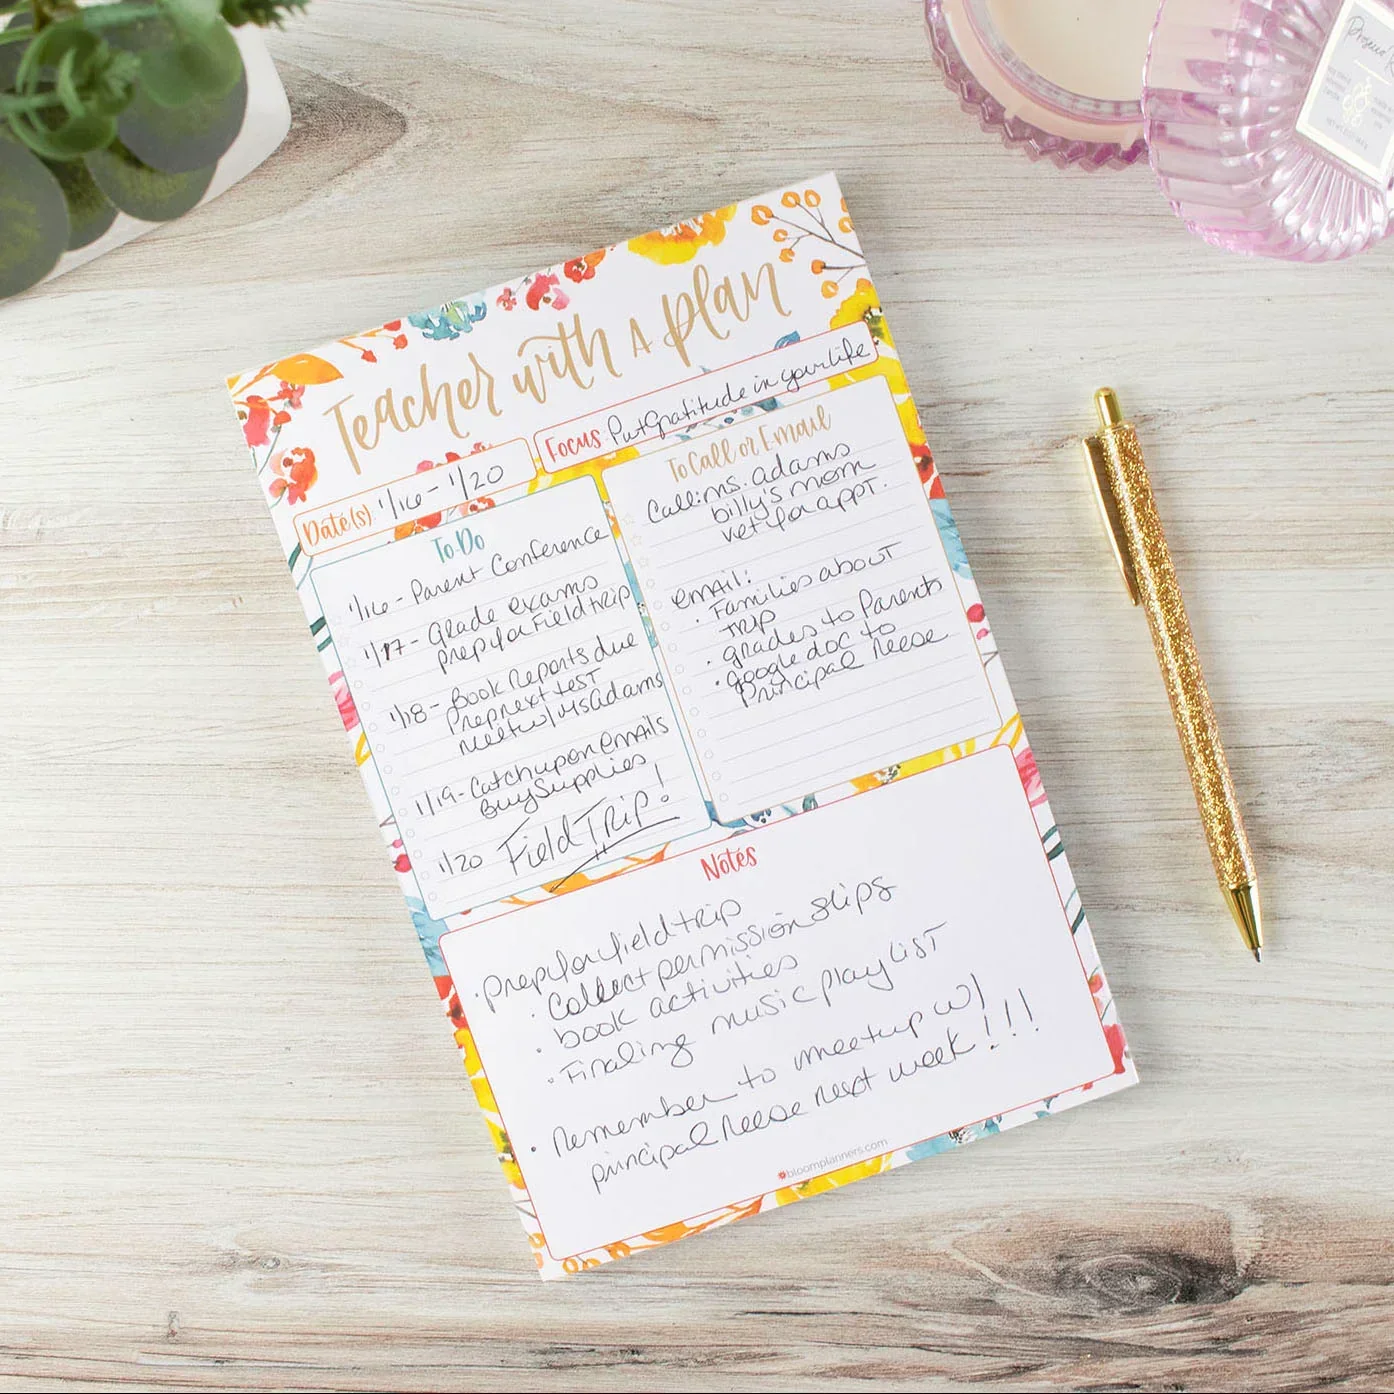 Teacher with a plan
Date(s): 1/16 - 1/20
Focus: Put Gratitude in your life
To-Do
1/16 - Parent Conference
1/17 - Grade exams
prep for Field trip
1/18 - Book Reports due
Prep next test
meet w/ Ms Adams
1/19 - Catch up on emails
Buy Supplies
1/20 Field Trip!
To Call or Email
Call: ms. adams
billy's mom
vet for appt.
email:
· Families about
trip
· grades to Parents
· google doc to
Principal Reese
Notes
· prep for field trip
· Collect permission slips
· book activities
· Finaling music playlist
· Remember to meet up w/
principal Reese next week!!!
bloomplanners.com
Prosecco